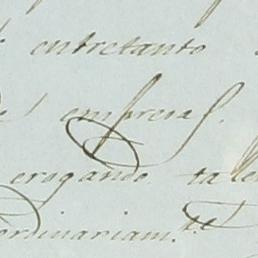 entretanto
empresas.
erogando tale
ordinariam.te